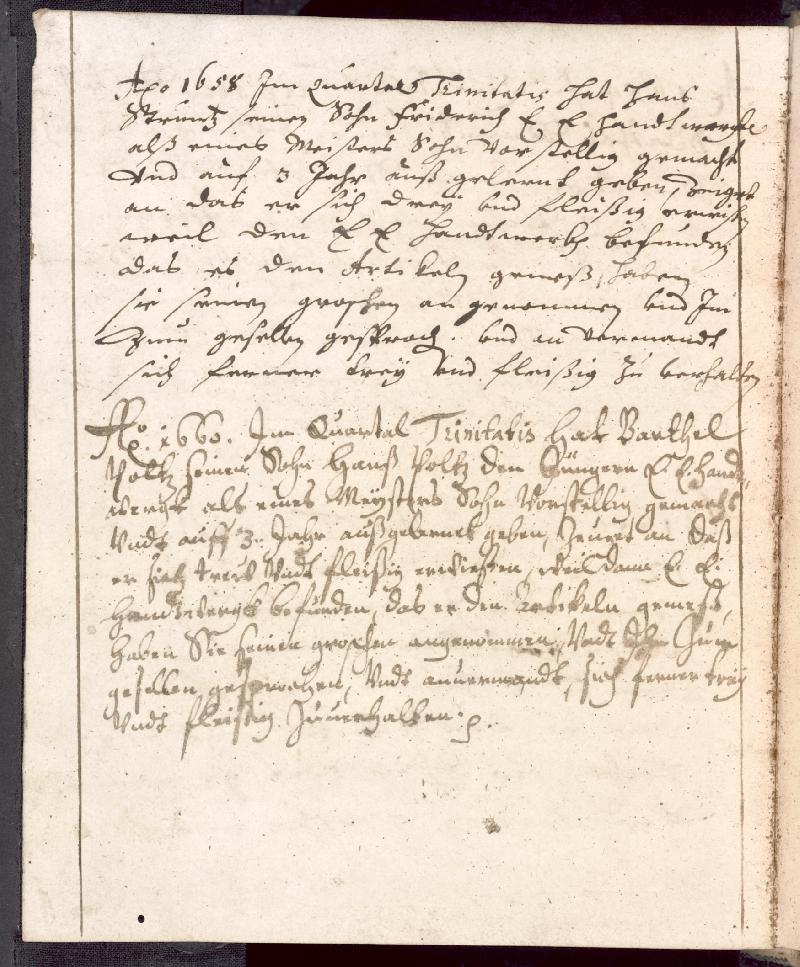 Ao 1658 Im Quartal Trinitatis hat Hans
Strentz seinen Sohn Friderich E. E. Handtwerckh
alß eines Meisters Sohn Vorstellig gemacht
Vnd auf 3 Jahr auß gelernt geben, zeiget
an das er sich trey vnd fleißig erwisen
weil den E E Handtwerckh befunden
das es den Artikeln gemeß, haben
sie seinen groschen an genommen vnd Im
Zum gesellen gesproch. vnd an vermandt
sich ferner trey vnd fleißig zu verhalten
Ao. 1660. Im Quartal Trinitatis hat Barthel
Poltz seinen Sohn Hanß Poltz den Jüngern E. E. Handt
wergk als eines Meysters Sohn Vorstellig gemacht
Vndt auff 3. Jahr außgelernet geben, Zeuget an daß
er sich treu Vndt fleißig erwießen, weil dann E. E.
Handtwergk befunden, das er den Artikeln gemeß,
haben Sie seinen groschen angenommen, Vndt Zum
gesellen gesprochen, Vndt anuermandt, sich ferner trey
Vndt fleißig Zuuerhalten. p.